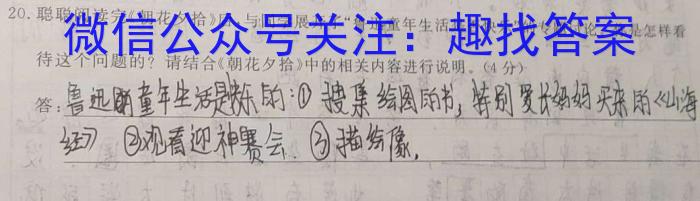 20. 聪聪阅读完《朝花夕拾》后，与同学展
微信公众号关注：趣找答案
是怎样看
待这个问题的？请结合《朝花夕拾》中的相关内容进行说明。(4分)
答：鲁迅的童年生活是快乐的：① 搜集绘图的书，特别是长妈妈买来的《山海
经》 ②观看迎神赛会. ③描绘像.